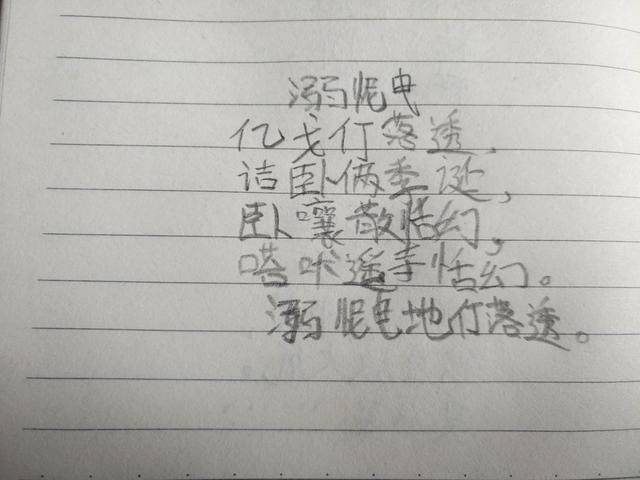 溺怩电
亿戈仃落透，
诘卧俩季诞，
卧嚷散恬幻，
嗒咔遥寺恬幻。
溺怩电地仃落透。